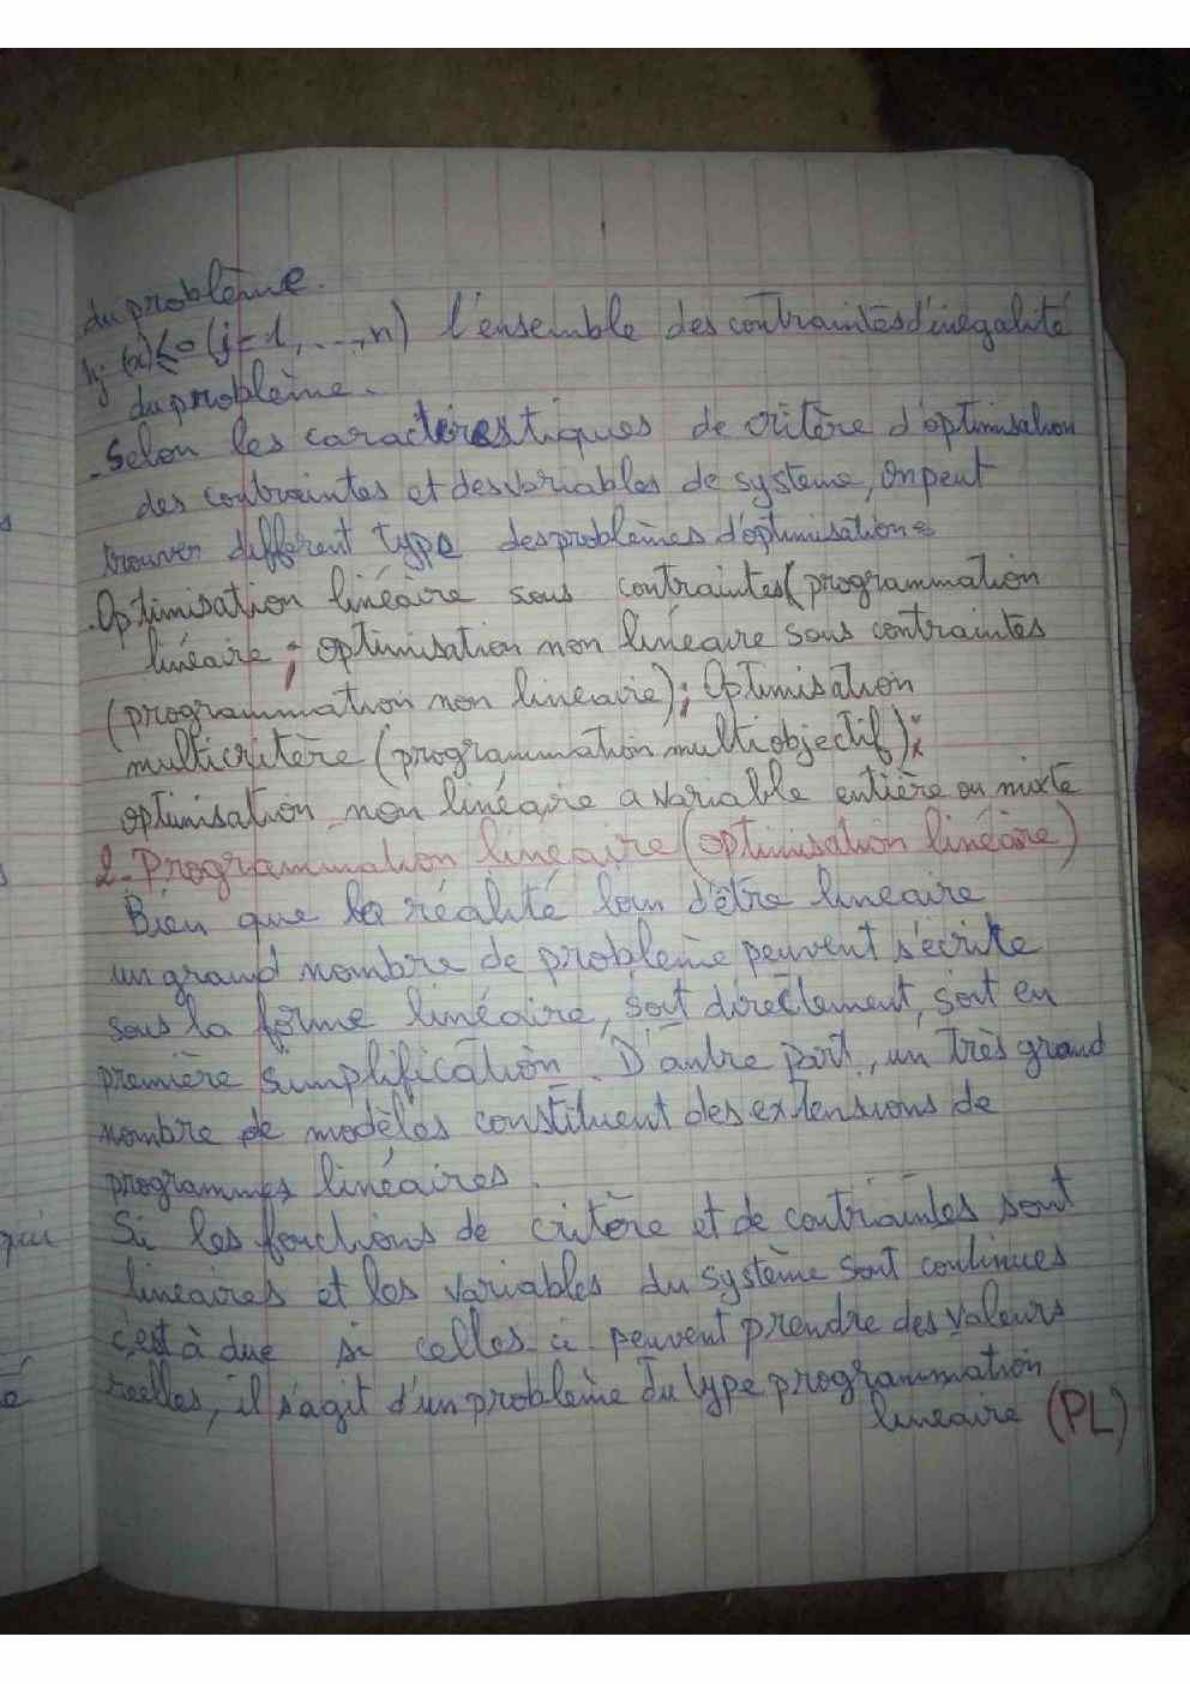 du problème.
hj (x) ≤ 0 (j = 1, ..., n) l'ensemble des contraintes d'inégalité
du problème.
- Selon les caractérestiques de critère d'optimisation
des contraintes et des variables de systeme, on peut
trouver différent type des problèmes d'optimisation :
. Optimisation linéaire sous contraintes (programmation
linéaire ; optimisation non linéaire sous contraintes
(programmation non lineaire) ; Optimisation
multicritère (programmation multiobjectif) ;
optimisation non linéaire a variable entière ou mixte
2. Programmation linéaire (optimisation linéaire)
Bien que la réalité loin d'être lineaire
un grand nombre de problème peuvent s'écrite
sous la forme linéaire, soit directement, soit en
première simplification. D'autre part, un très grand
nombre de modèles constituent des extensions de
programmes linéaires.
Si les fonctions de critère et de contraintes sont
lineaires et les variables du système sont continues
c'est à dire si celles ci peuvent prendre des valeurs
reelles, il s'agit d'un problème du type programmation
lineaire (PL)
qui